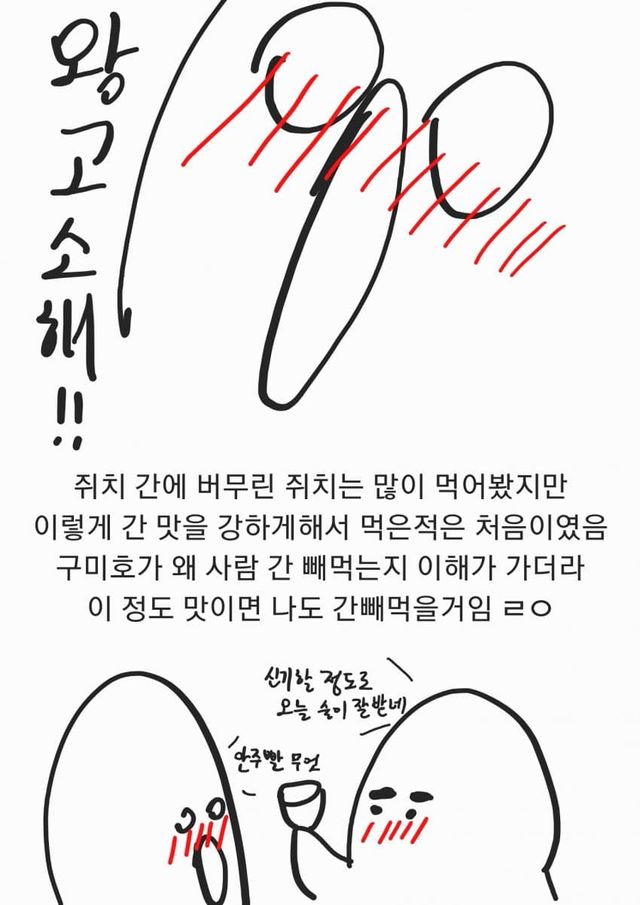 왕고소해!!
쥐치 간에 버무린 쥐치는 많이 먹어봤지만
이렇게 간 맛을 강하게해서 먹은적은 처음이였음
구미호가 왜 사람 간 빼먹는지 이해가 가더라
이 정도 맛이면 나도 간빼먹을거임 ㄹㅇ
신기할 정도로
오늘 술이 잘받네
안주빨 무언